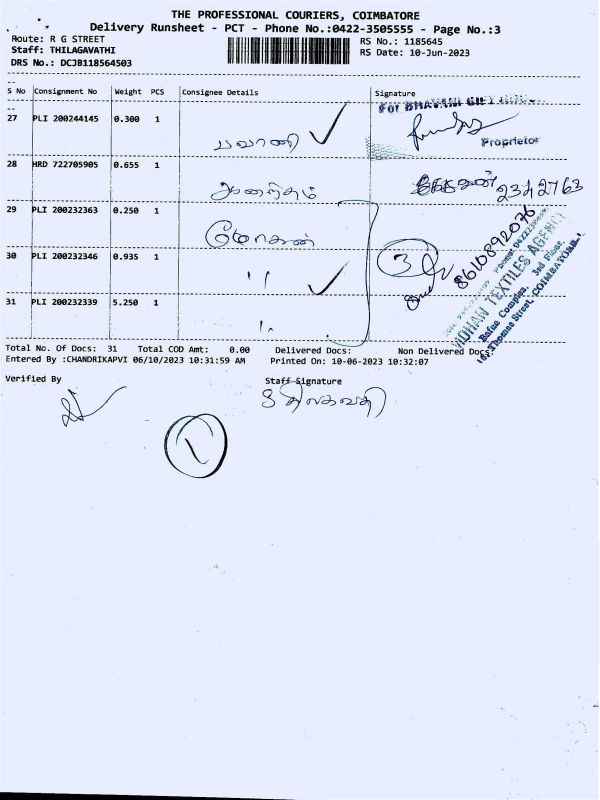 THE PROFESSIONAL COURIERS, COIMBATORE
Delivery Runsheet - PCT - Phone No.:0422-3505555 - Page No.:3
Route: R G STREET
RS No.: 1185645
Staff: THILAGAVATHI
RS Date: 10-Jun-2023
DRS No.: DCJB118564503
S No Consignment No Weight PCS Consignee Details Signature
For BHAVANI
27 PLI 200244145 0.300 1
பவானி
Proprietor
28 HRD 722705905 0.655 1
2342763
29 PLI 200232363 0.250 1
மோகன்
8610892076
30 PLI 200232346 0.935 1
" 3
31 PLI 200232339 5.250 1
"
MOHAN TEXTILES AGENCY
Complex, 3nd Floor,
Thomas Street, COIMBATORE-1.
Total No. Of Docs: 31 Total COD Amt: 0.00 Delivered Docs: Non Delivered Docs:
Entered By :CHANDRIKAPVI 06/10/2023 10:31:59 AM Printed On: 10-06-2023 10:32:07
Verified By Staff Signature
திலகவதி
1